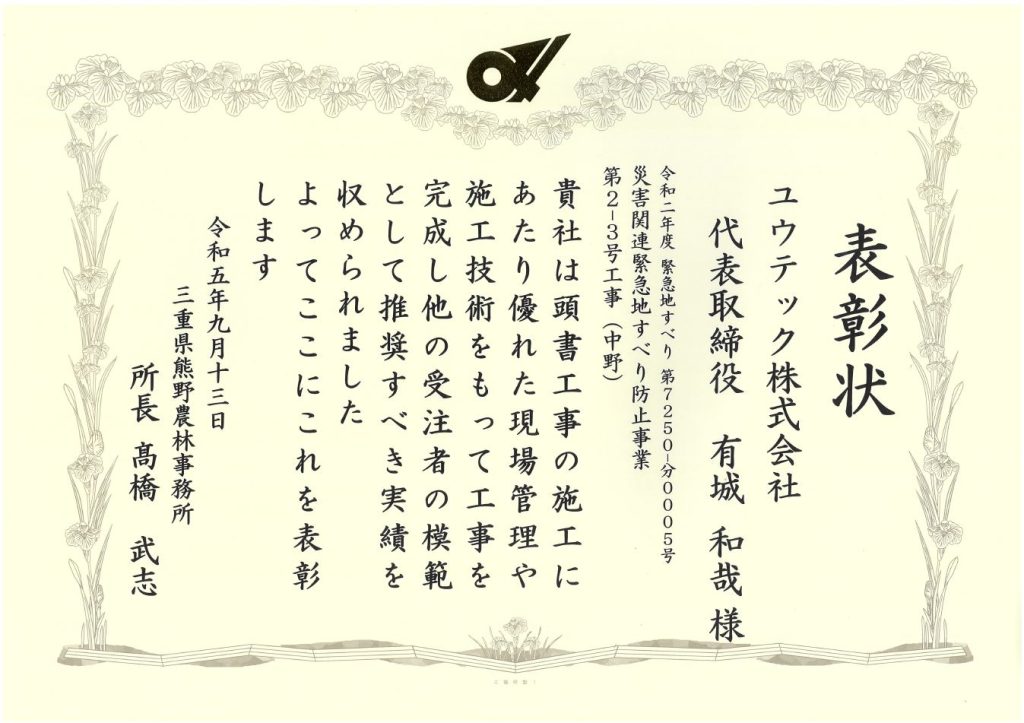 表彰状
ユウテック株式会社
代表取締役 有城 和哉 様
令和二年度 緊急地すべり 第7250-分0005号
災害関連緊急地すべり防止事業
第2-3号工事（中野）
貴社は頭書工事の施工に
あたり優れた現場管理や
施工技術をもって工事を
完成し他の受注者の模範
として推奨すべき実績を
収められました
よってここにこれを表彰
します
令和五年九月十三日
三重県熊野農林事務所
所長 髙橋 武志